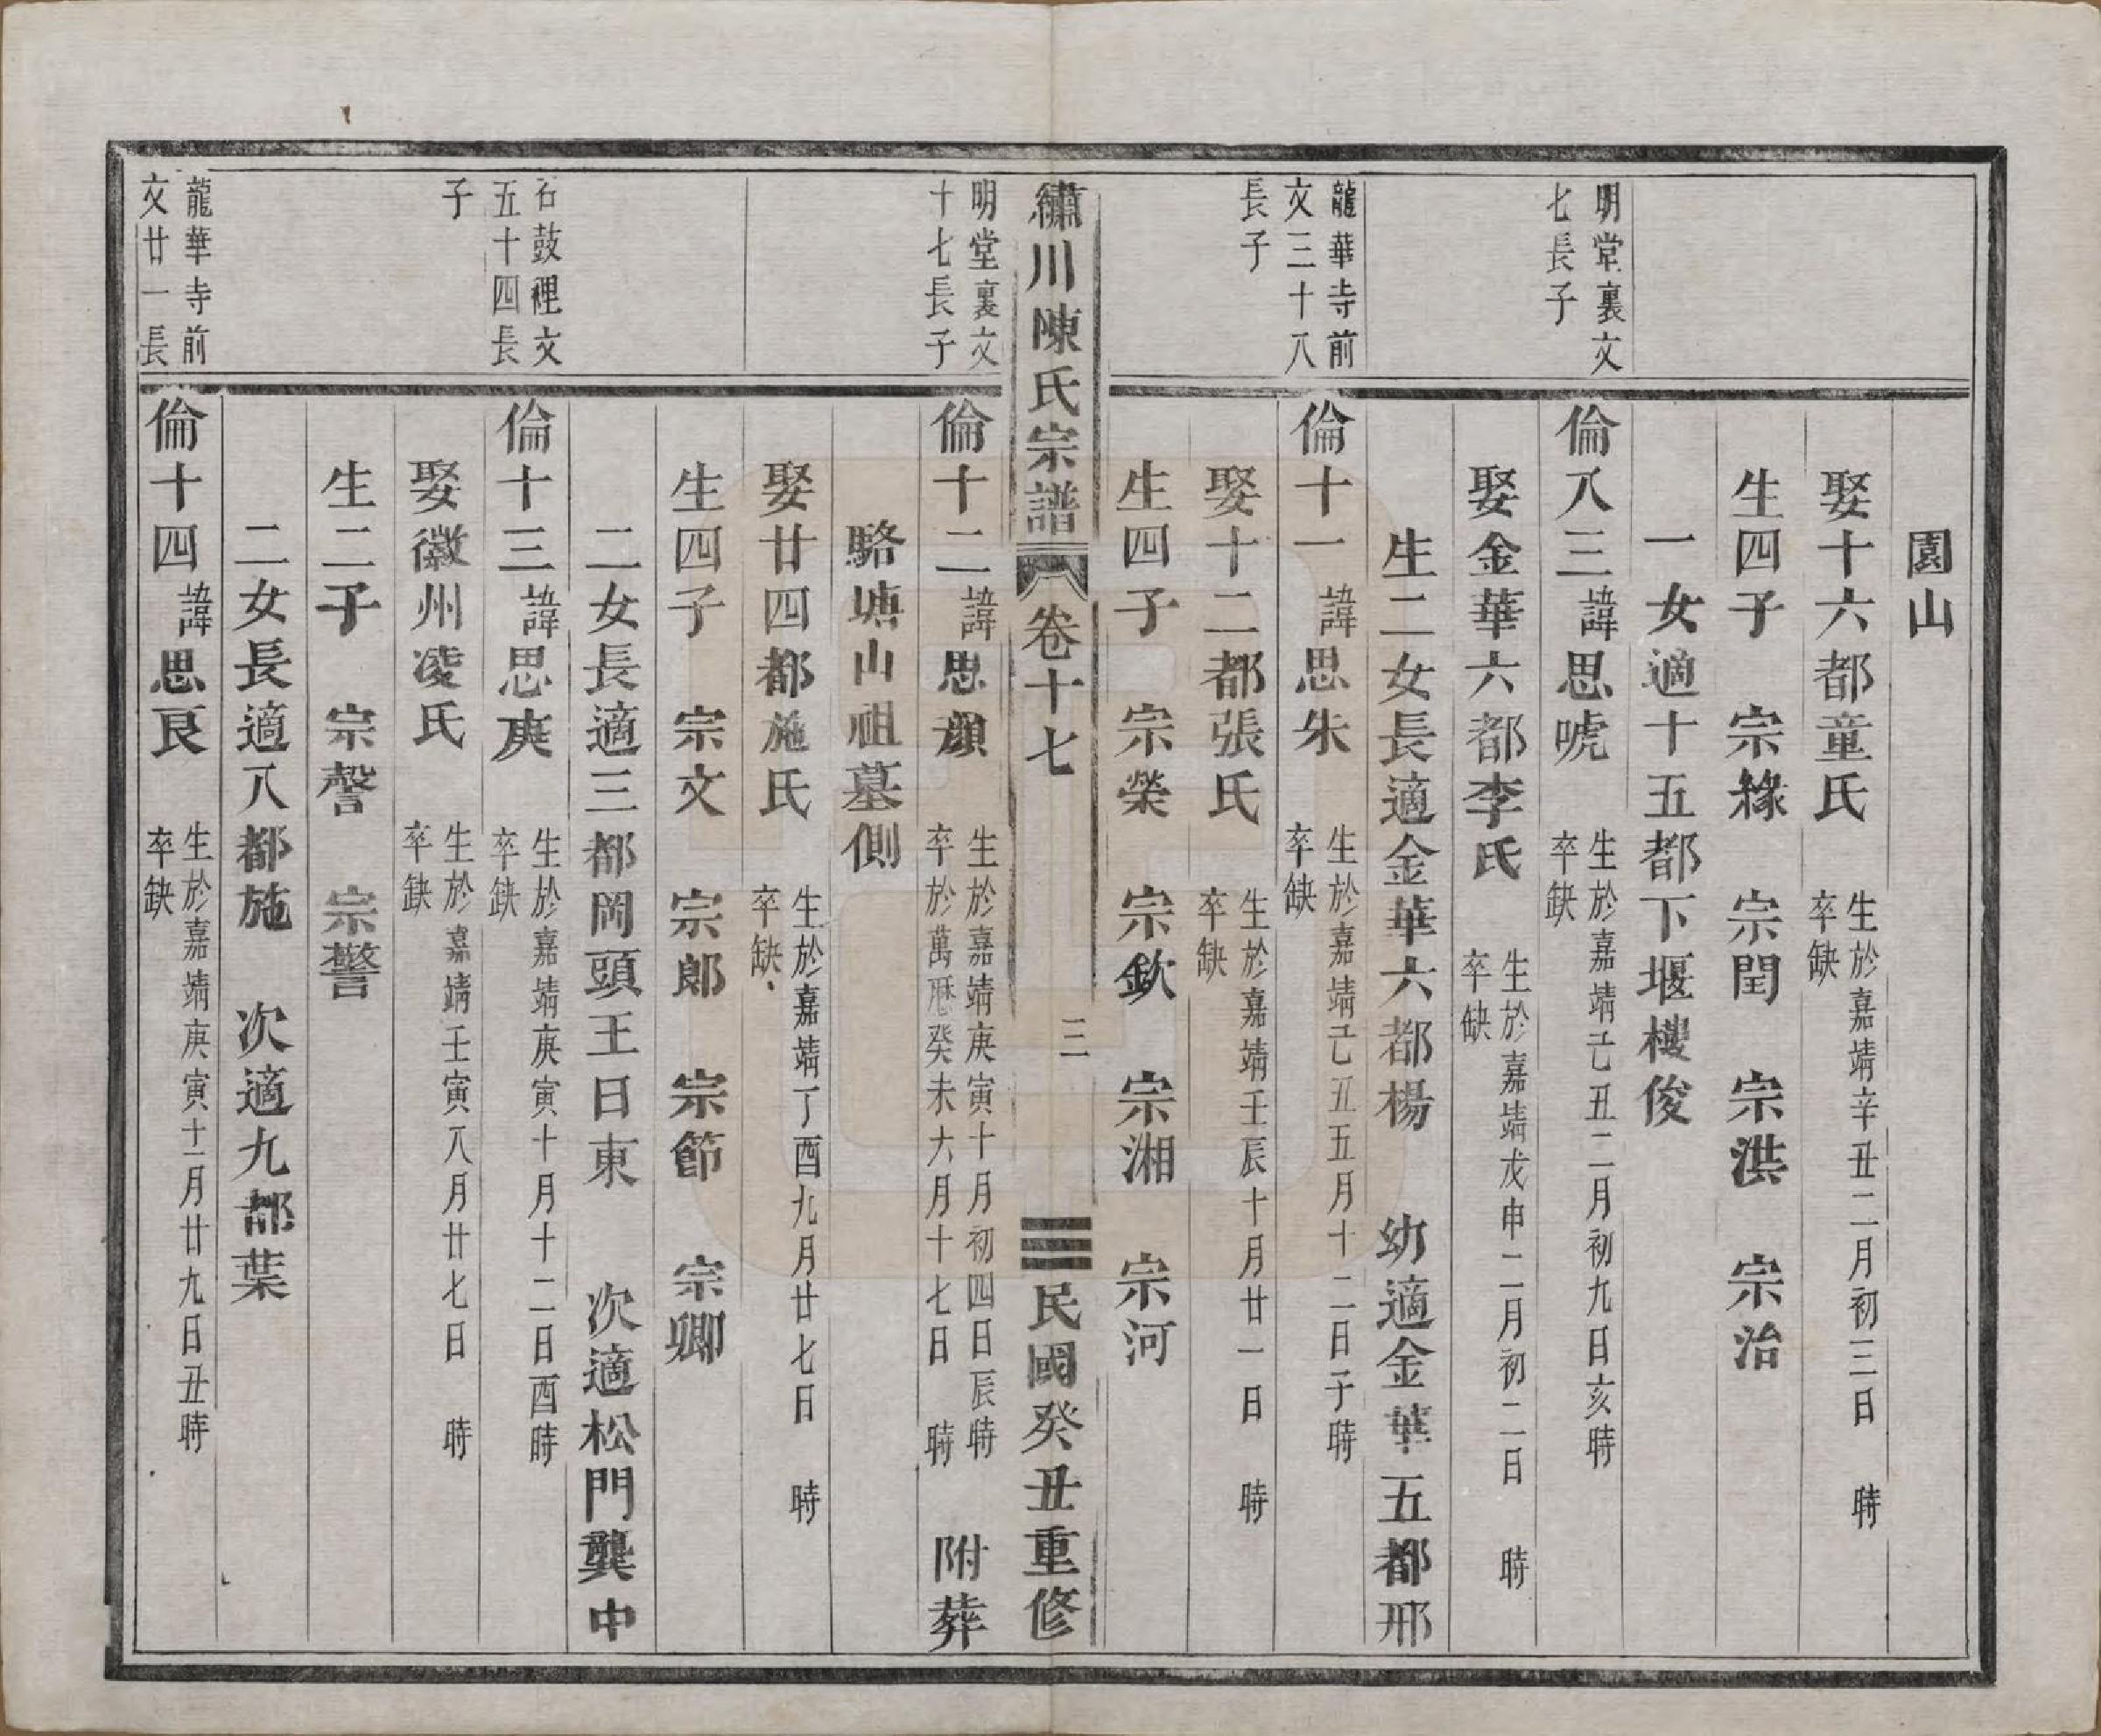 園山
娶十六都童氏 生於嘉靖辛丑二月初三日 時
卒缺
生四子 宗緣 宗閏 宗洪 宗治
一女適十五都下堰樓俊
明堂裏文
七長子
倫八三諱思唬 生於嘉靖己丑二月初九日亥時
卒缺
娶金華六都李氏 生於嘉靖戊申二月初二日 時
卒缺
生二女長適金華六都楊 幼適金華五都邢
龍華寺前
文三十八
長子
倫十一諱思朱 生於嘉靖己丑五月十二日子時
卒缺
娶十二都張氏 生於嘉靖壬辰十月廿一日 時
卒缺
生四子 宗榮 宗欽 宗湘 宗河
繡川陳氏宗譜 卷十七 三 民國癸丑重修
明堂裏文
十七長子
倫十二諱思顏 生於嘉靖庚寅十月初四日辰時
卒於萬歷癸未六月十七日 時 附葬
駱塘山祖墓側
娶廿四都施氏 生於嘉靖丁酉九月廿七日 時
卒缺
生四子 宗文 宗郎 宗節 宗卿
二女長適三都岡頭王日東 次適松門龔中
石鼓裡文
五十四長
子
倫十三諱思庚 生於嘉靖庚寅十月十二日酉時
卒缺
娶徽州凌氏 生於嘉靖壬寅八月廿七日 時
卒缺
生二子 宗謦 宗警
二女長適八都施 次適九都葉
龍華寺前
文廿一長
倫十四諱思良 生於嘉靖庚寅十一月廿九日丑時
卒缺